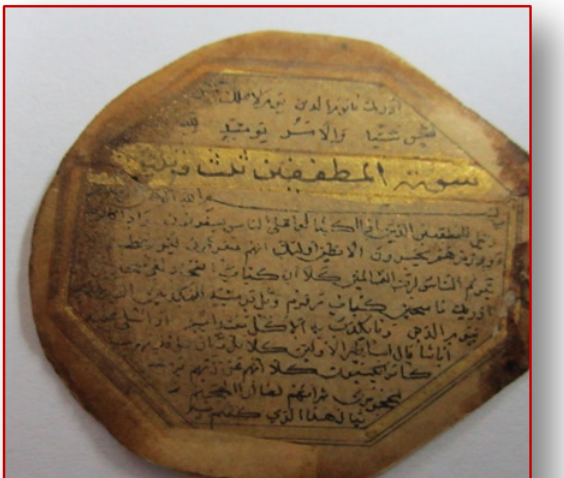 ادريك ما يوم الدين يوم لا تملك
نفس شيئا والامر يومئذ لله
سورة المطففين ثلث و
الله
ويل للمطففين الذين اذا اكتالوا على الناس يستوفون واذا
وزنوهم يخسرون الا يظن اولئك انهم مبعوثون ليوم عظيم
يقوم الناس لرب العالمين كلا ان كتاب الفجار لفي سجين
ادريك ما سجين كتاب مرقوم ويل يومئذ للمكذبين الذين
بيوم الدين وما يكذب به الا كل معتد اثيم اذا تتلى عليه
اياتنا قال اساطير الاولين كلا بل ران على قلوبهم
كانوا يكسبون كلا انهم عن ربهم يومئذ
لمحجوبون ثم انهم لصالوا الجحيم ثم
يقال هذا الذي كنتم به